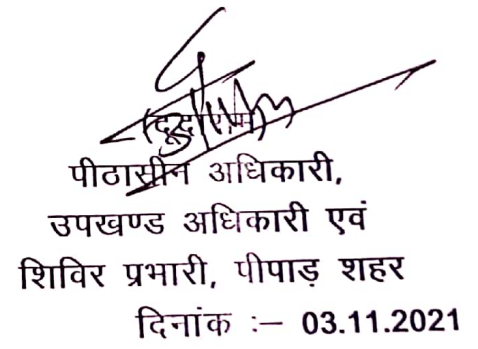 पीठासीन अधिकारी,
उपखण्ड अधिकारी एवं
शिविर प्रभारी, पीपाड़ शहर
दिनांक :– 03.11.2021